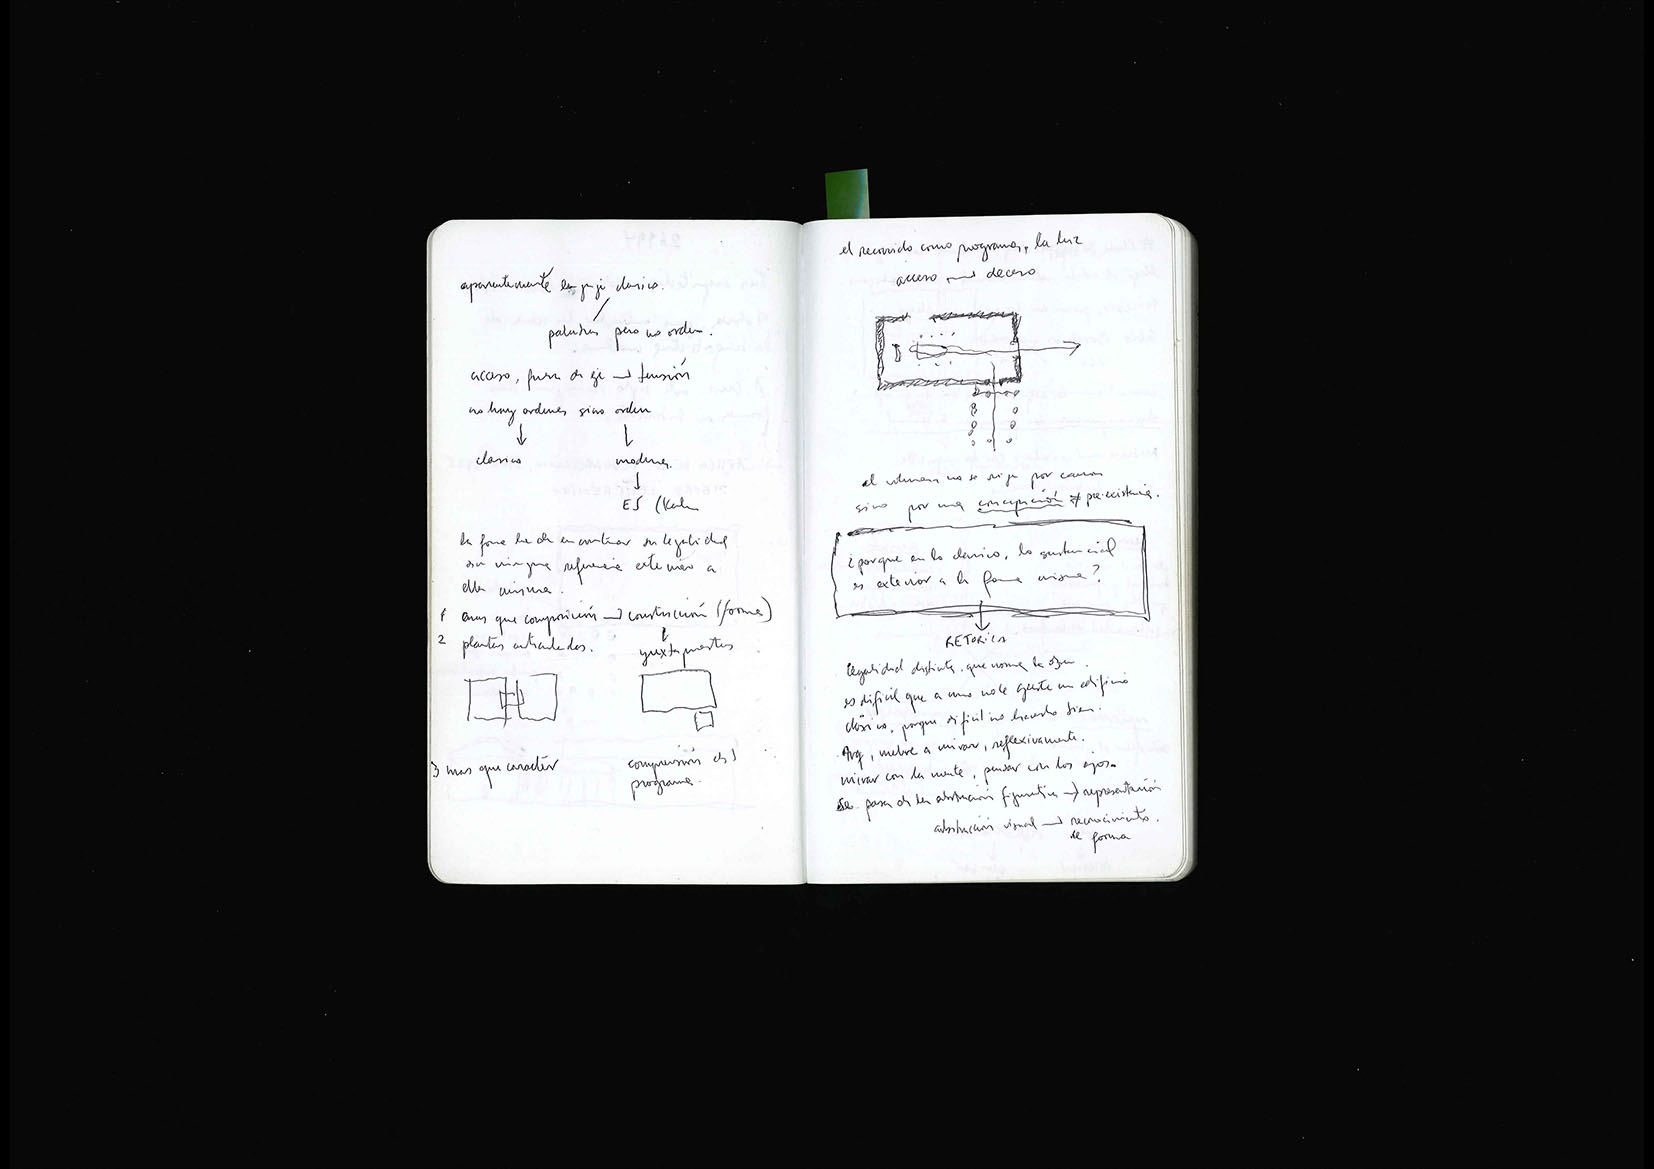 aparentemente lenguaje clasico.
palabras pero no orden.
acceso, fuera de eje → tensión
no hay ordenes sino orden
clasico
moderna.
ES (Kahn
la forma ha de encontrar su legalidad
sin ninguna referencia exterior a
ella misma.
1 mas que composición → construcción (forma)
2 plantas articuladas.
yuxtapuestas
3 mas que caracter
comprensión del
programa.
el recorrido como programa, la luz
acceso → deceso
el volumen no se rige por canon
sino por una concepción ≠ pre-existencia.
¿porque en lo clasico, lo sustancial
es exterior a la forma misma?
RETORICA
legalidad distinta, que norma la obra.
es dificil que a uno no le guste un edificio
clásico, porque dificil no hacerlo bien.
Arq, vuelve a mirar, reflexivamente.
mirar con la mente, pensar con los ojos.
Se pasa de la abstracción figurativa → representación
abstracción visual → reconocimiento
de forma